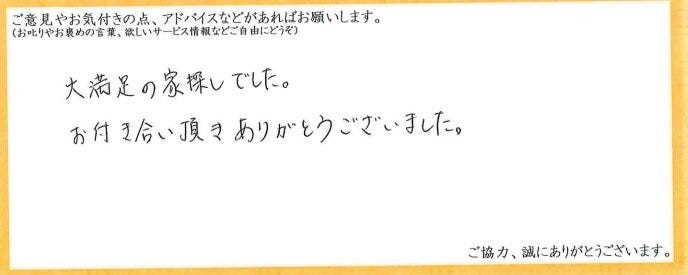 ご意見やお気付きの点、アドバイスなどがあればお願いします。
(お叱りやお褒めの言葉、欲しいサービス情報などご自由にどうぞ)
大満足の家探しでした。
お付き合い頂きありがとうございました。
ご協力、誠にありがとうございます。